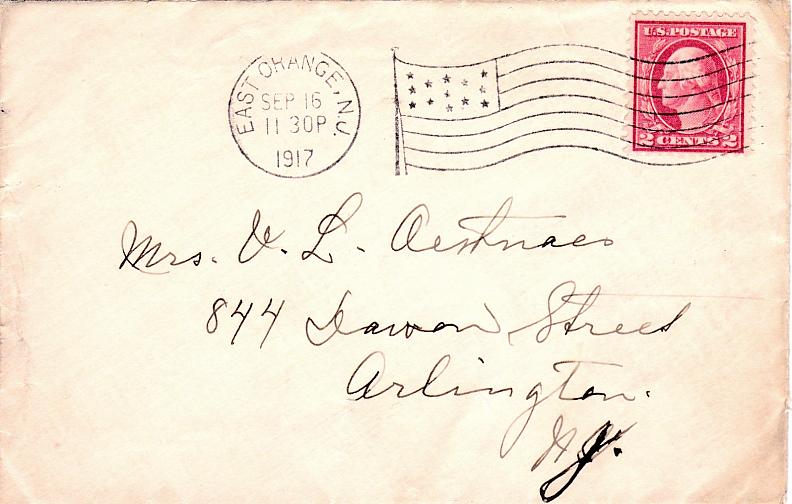 EAST ORANGE, N.J.
SEP 16
11 30P
1917
U.S. POSTAGE
2 CENTS 2
Mrs. V. L.
844 Street
Arlington.
N.J.